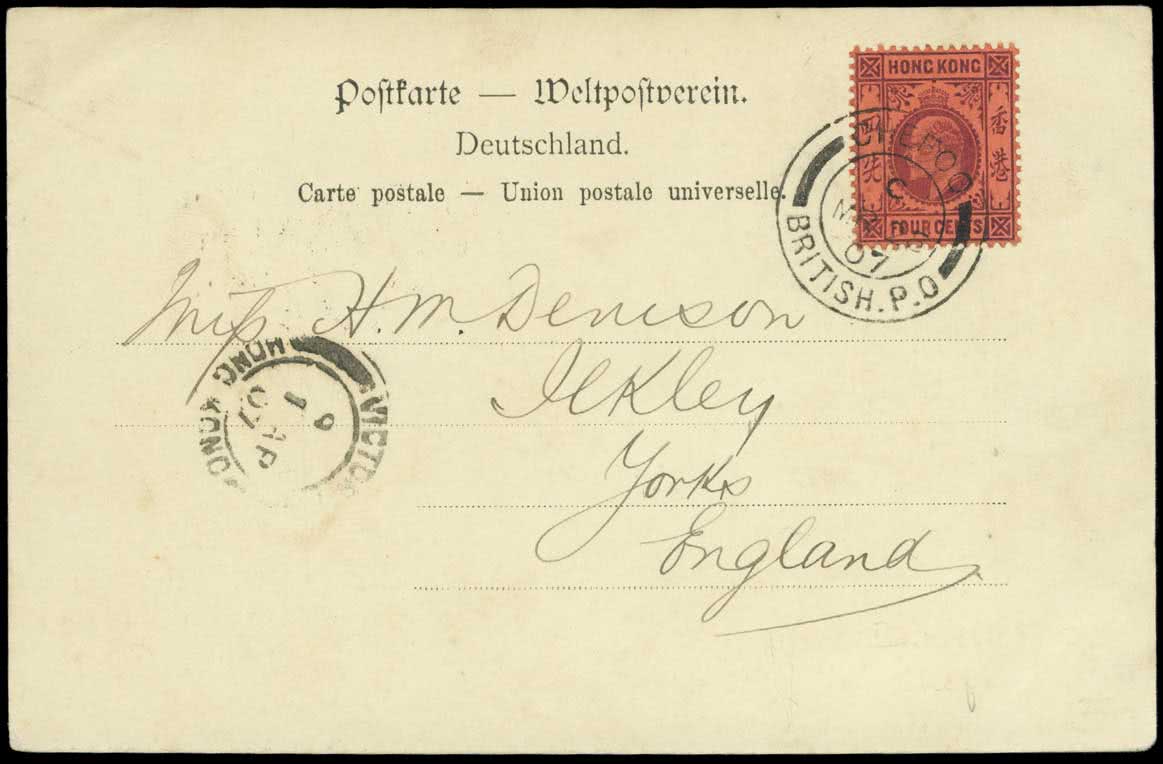 Postkarte — Weltpostverein.
Deutschland.
Carte postale — Union postale universelle.
HONG KONG
香港
四先
FOUR CENTS
CHEFOO
C
07
BRITISH.P.O
Miss H.M. Denison
Ilkley
Yorks
England
VICTOR
HONG KONG
9
AP
07